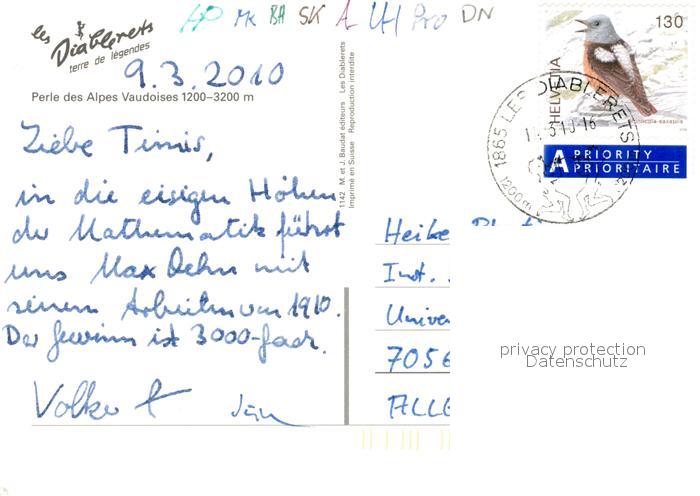 HP MK BA SK A UH Pro DN
les Diablerets
terre de légendes
9.3.2010
Perle des Alpes Vaudoises 1200–3200 m
Liebe Timis,
in die eisigen Höhen
der Mathematik führt
uns Max Dehn mit
seinen Arbeiten von 1910.
Der Gewinn ist 3000-fach.
Volker
1142 M. et J. Baudat éditeurs Les Diablerets
Imprimé en Suisse Reproduction interdite
HELVETIA
130
A PRIORITY
PRIORITAIRE
1865 LES DIABLERETS
1200m
Heike
Inst.
Univer
7056
ALLE
privacy protection
Datenschutz